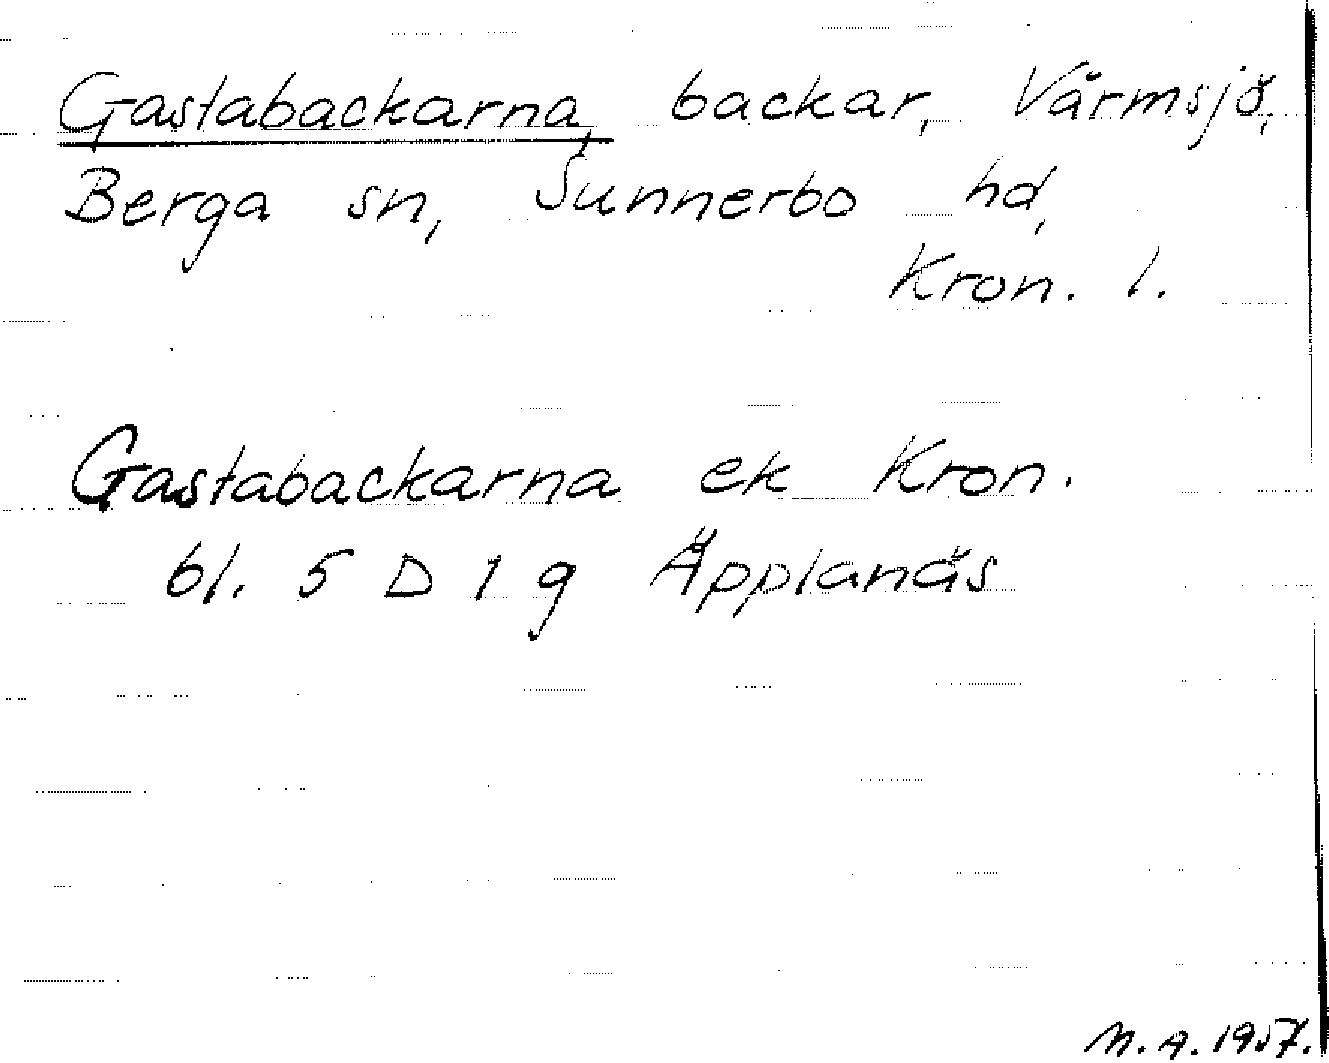 Gastabackarna, backar, Värmsjö,
Berga sn, Sunnerbo hd,
Kron. l.
Gastabackarna ek Kron.
bl. 5 D 1 g Äpplanäs
M. A. 1957.